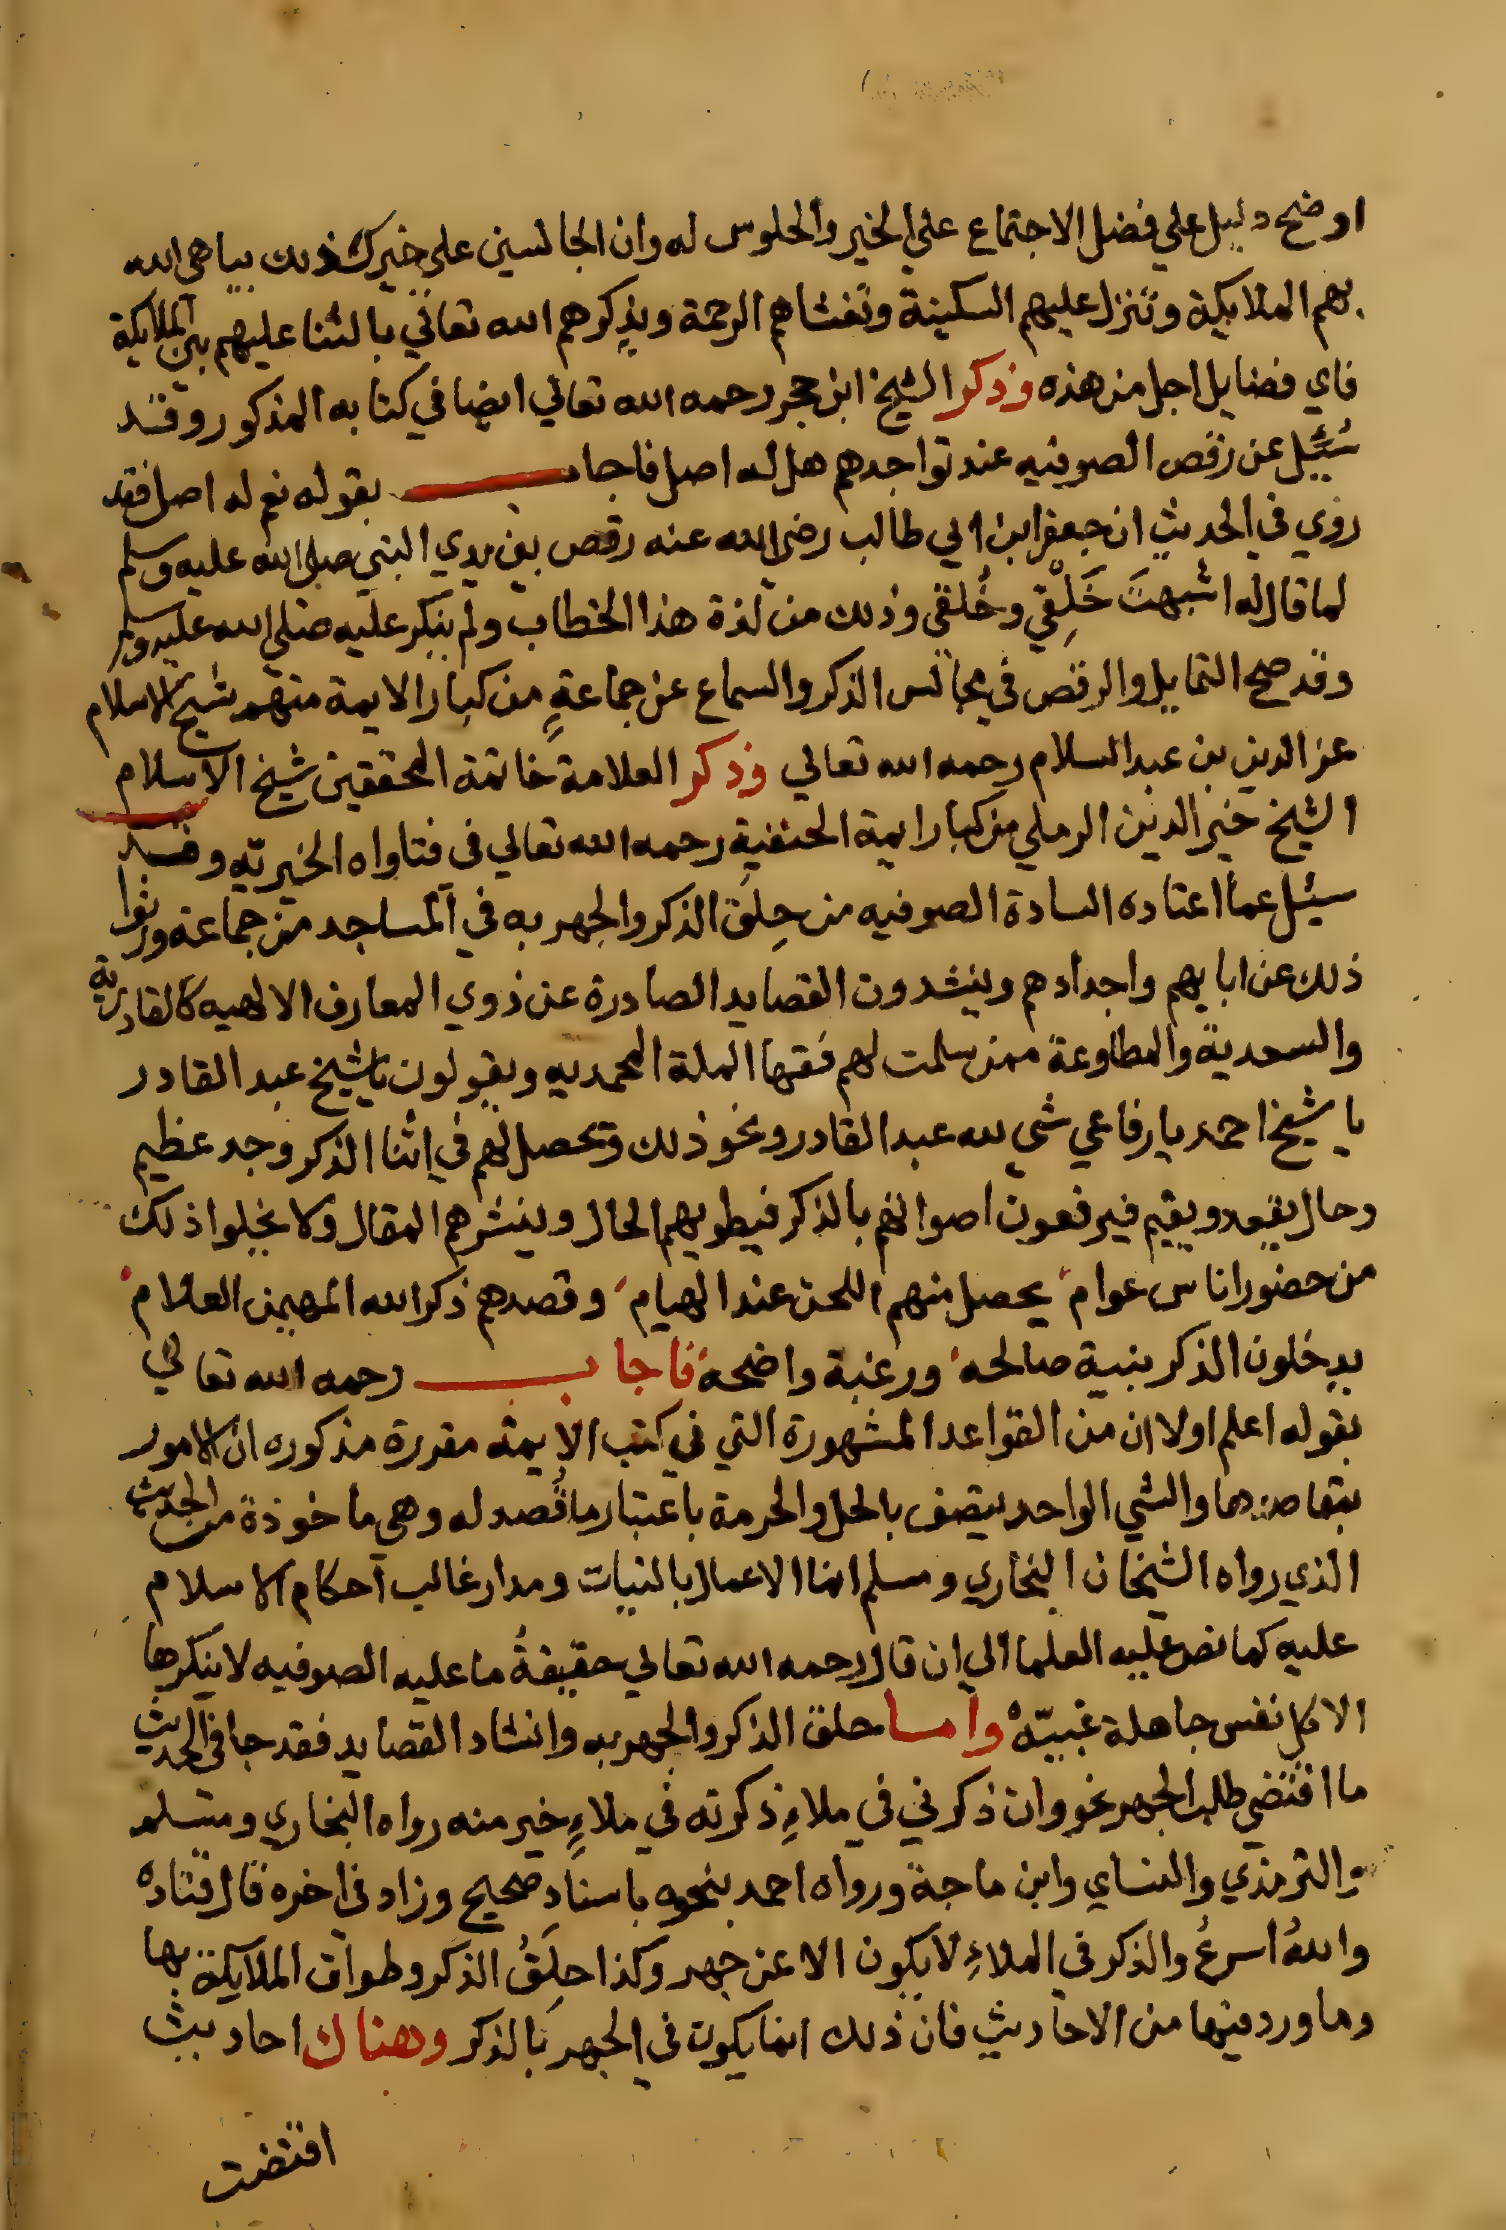 اوضح دليل علي فضل الاجتماع علي الخير والجلوس له وان الجالسين علي خير كذلك يباهي الله
بهم الملايكة وتنزل عليهم السكينة وتغشاهم الرحمة ويذكرهم الله تعالي بالثنا عليهم بين الملايكة
فاي فضايل اجل من هذه وذكر الشيخ ابن حجر رحمه الله تعالي ايضا في كتابه المذكور وقد
سُئِل عن رقص الصوفيه عند تواجدهم هل له اصل فاجاب بقوله نعم له اصل فقد
روي في الحديث ان جعفر ابن ابي طالب رضي الله عنه رقص بين يدي النبي صلي الله عليه وسلم
لما قال له اشبهتَ خَلْقِي وخُلقي وذلك من لذة هذا الخطاب ولم ينكر عليه صلي الله عليه وسلم
وقد صح التمايل والرقص في مجالس الذكر والسماع عن جماعةٍ من كبار الايمة منهم شيخ الاسلام
عز الدين بن عبد السلام رحمه الله تعالي وذكر العلامة خاتمة المحققين شيخ الاسلام
الشيخ خير الدين الرملي من كبار ايمة الحنفية رحمه الله تعالي في فتاواه الخيريّه وقد
سيئل عما اعتاده السادة الصوفيه من حِلَق الذكر والجهر به في المساجد من جماعة ورثوا
ذلك عن ابايهم واجدادهم وينشدون القصايد الصادرة عن ذوي المعارف الالهيه كالقادرية
والسعدية والمطاوعة ممن سلمت لهم فقها الملة المحمديه ويقولون ياشيخ عبد القادر
يا شيخ احمد يا رفاعي شي لله عبد القادر ونحو ذلك ويحصل لهم في اثنا الذكر وجد عظيم
وحال يقعد ويقيم فيرفعون اصواتهم بالذكر فيطويهم الحال وينشرهم المقال ولا يخلوا ذلك
من حضور اناس عوام يحصل منهم اللحن عند الهيام وقصدهم ذكر الله المهيمن العلام
يدخلون الذكر بنية صالحة ورغبة واضحة فاجاب رحمه الله تعالي
بقوله اعلم اولا ان من القواعد المشهورة التي في كتب الايمة مقررة مذكوره ان الامور
بمقاصدها والشي الواحد يتصف بالحل والحرمة باعتبار ما قُصد له وهي ماخوذة من الحديث
الذي رواه الشيخان البخاري ومسلم انما الاعمال بالنيات ومدار غالب احكام الاسلام
عليه كما نص عليه العلما الي ان قال رحمه الله تعالي حقيقةُ ما عليه الصوفيه لا ينكرها
الا كل نفس جاهلة غبيّة واما حلق الذكر والجهر به وانشاد القصايد فقد جا في الحديث
ما اقتضي طلب الجهر نحو وان ذكرني في ملاءٍ ذكرته في ملاءٍ خير منه رواه البخاري ومسلم
والترمذي والنساي وابن ماجة ورواه احمد بنحوه باسناد صحيح وزاد في اخره قال قتاده
واللهُ اسرعُ والذكر في الملاءِ لا يكون الا عن جهر وكذا حِلَقُ الذكر وطواف الملايكة بها
وما ورد فيها من الاحاديث فان ذلك انما يكون في الجهر بالذكر وهناك احاديث
اقتضت